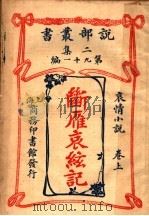 説部叢書
二集
第九十一編
哀情小説 卷上
斷雁哀絃記
上海商務印書館發行